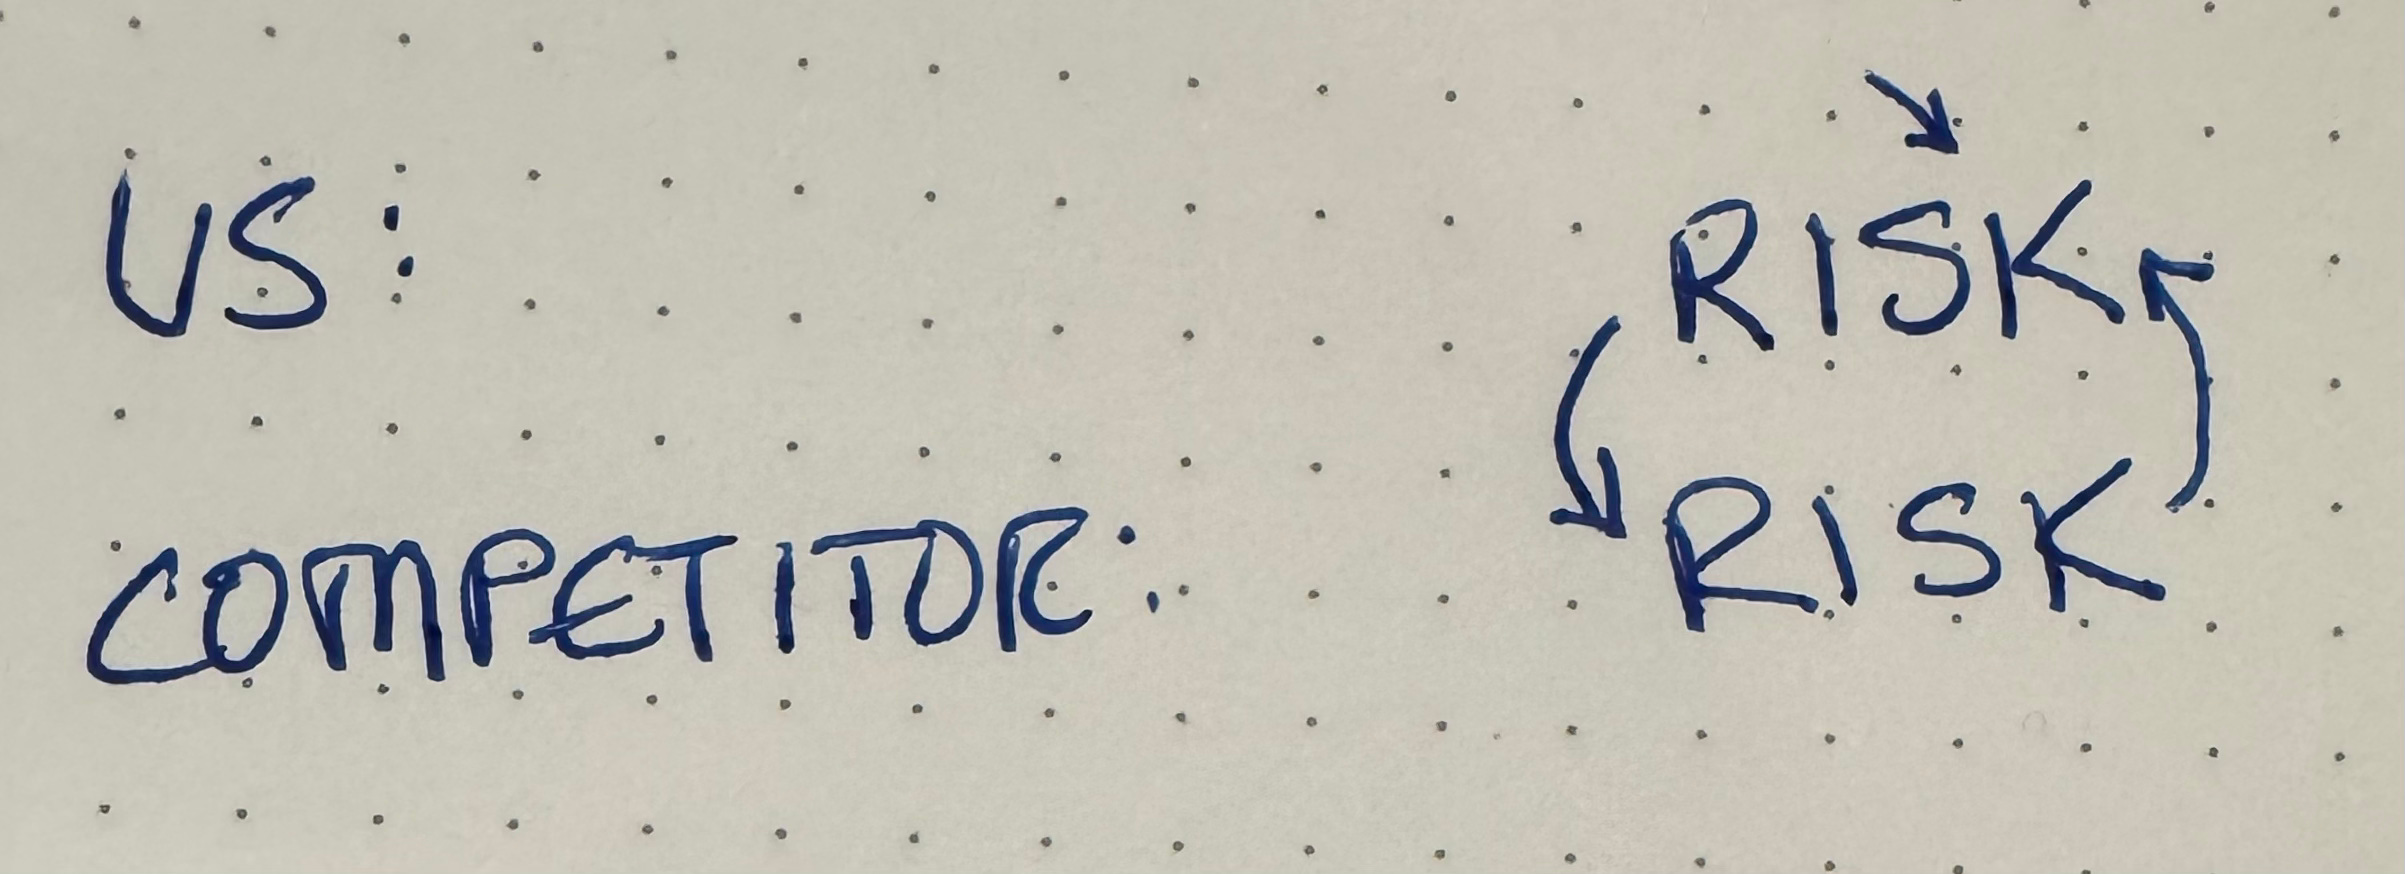 US: RISK
COMPETITOR: RISK